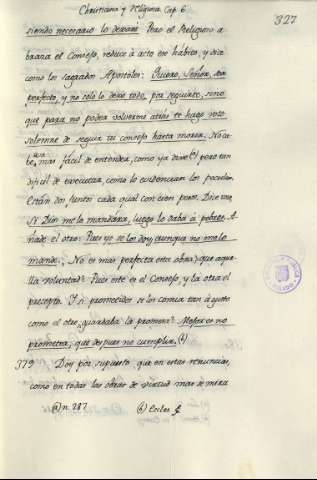 Christiana y Religiosa Cap. 6
327
siendo necesario lo dexara. Pero el Religioso a-
braza el Consejo, reduce à acto ese habito, y dice
como los sagrados Apostoles: Quiero, Señor, ser
perfecto, y no sólo lo dexo todo, por seguirte, sino
que para no poder volverme atrás te hago voto
solemne de seguir tu consejo hasta morir. No ca-
be, mas fácil de entender, como ya dixe (a) pero tan
dificil de executar, como lo evidencian los pocos
Están dos juntos cada qual con cien pesos. Dice uno,
Si Dios me lo mandara, luego lo daba à pobres. A-
ñade el otro: Pues yo se los doy, aunque no me lo
mande. No es mas perfecta esta obra, que aque-
lla voluntad? Pues este es el Consejo, y la otra el
precepto. Y si prometidos se los comia tan à gusto
como el otro, guardaba la promesa? Mejor es no
prometer, que despues no cumplir. (b)
379 Doy por supuesto que en estas renuncias,
como en todas las obras de virtud mas se mira
(a) n. 287 (b) Eccles. 5